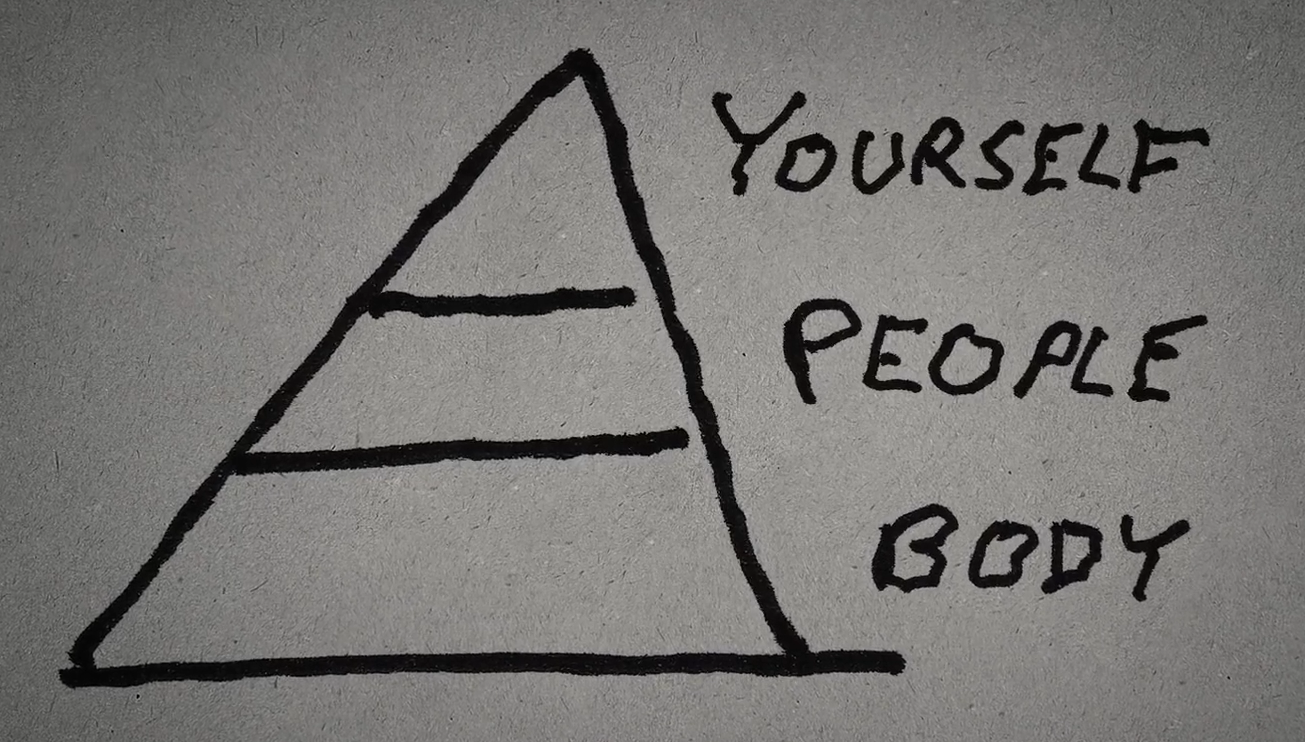 YOURSELF
PEOPLE
BODY